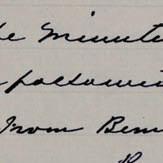 he Minute
followin
From Ben